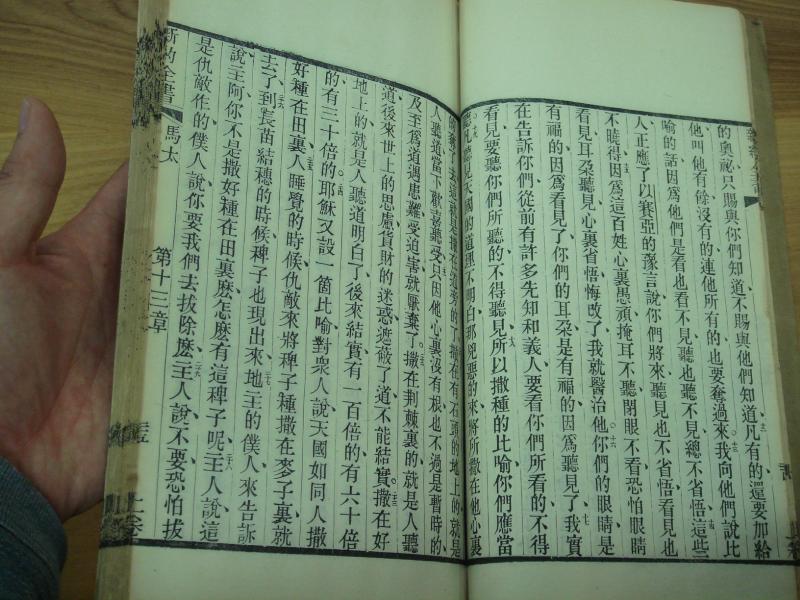 的奧祕只賜與你們知道不賜與他們知道凡有的還要加給
他叫他有餘沒有的連他所有的也要奪過來我向他們說比
喻的話因爲他們是看也看不見聽也聽不見總不省悟這些
人正應了以賽亞的豫言說你們將來聽見也不省悟看見也
不曉得因爲這百姓心裏愚頑掩耳不聽閉眼不看恐怕眼睛
看見耳朶聽見心裏省悟悔改了我就醫治他你們的眼睛是
有福的因爲看見了你們的耳朶是有福的因爲聽見了我實
在告訴你們從前有許多先知和義人要看你們所看的不得
看見要聽你們所聽的不得聽見所以撒種的比喻你們應當
聽凡聽見天國的道理不明白那兇惡的來將所撒在他心裏
的奪了去這就是撒在道旁的了撒在有石頭的地上的就是
人聽道當下歡喜聽受只因他心裏沒有根也不過是暫時的
及至爲道遇患難受迫害就厭棄了撒在荆棘裏的就是人聽
道後來世上的思慮貨財的迷惑遮蔽了道不能結實撒在好
地上的就是人聽道明白了後來結實有一百倍的有六十倍
的有三十倍的耶穌又設一箇比喻對衆人說天國如同人撒
好種在田裏人睡覺的時候仇敵來將稗子種撒在麥子裏就
去了到長苗結穗的時候稗子也現出來地主的僕人來告訴
說主阿你不是撒好種在田裏麽怎麽有這稗子呢主人說這
是仇敵作的僕人說你要我們去拔除麽主人說不要恐怕拔
新約全書 馬太 第十三章 上卷